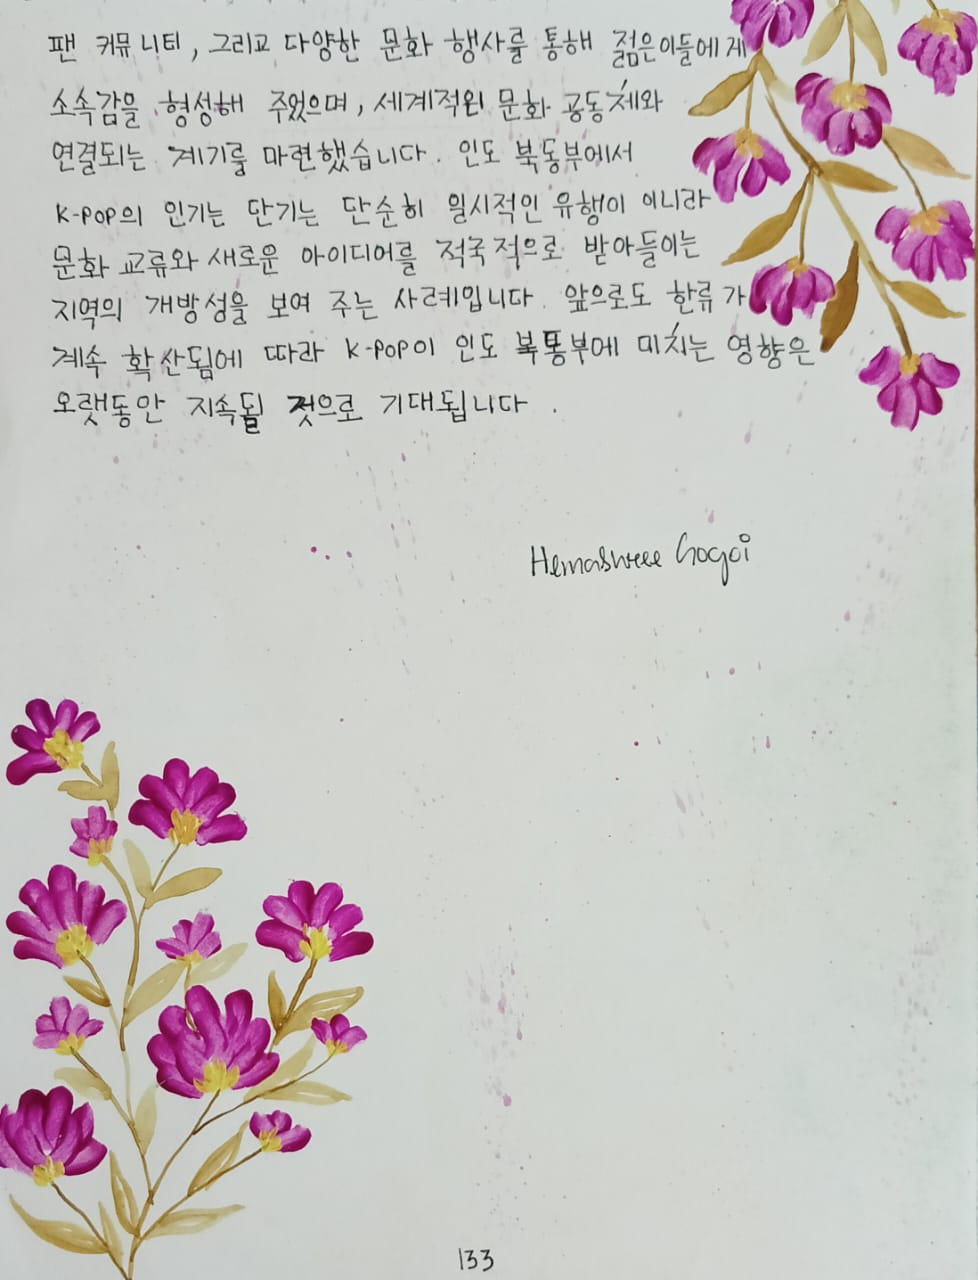 팬 커뮤니티, 그리고 다양한 문화 행사를 통해 젊은이들에게
소속감을 형성해 주었으며, 세계적인 문화 공동체와
연결되는 계기를 마련했습니다. 인도 북동부에서
K-POP의 인기는 단기는 단순히 일시적인 유행이 아니라
문화 교류와 새로운 아이디어를 적국적으로 받아들이는
지역의 개방성을 보여 주는 사례입니다. 앞으로도 한류가
계속 확산됨에 따라 K-POP이 인도 북통부에 미치는 영향은
오랫동안 지속될 것으로 기대됩니다.
Hemashreee Gogoi
133